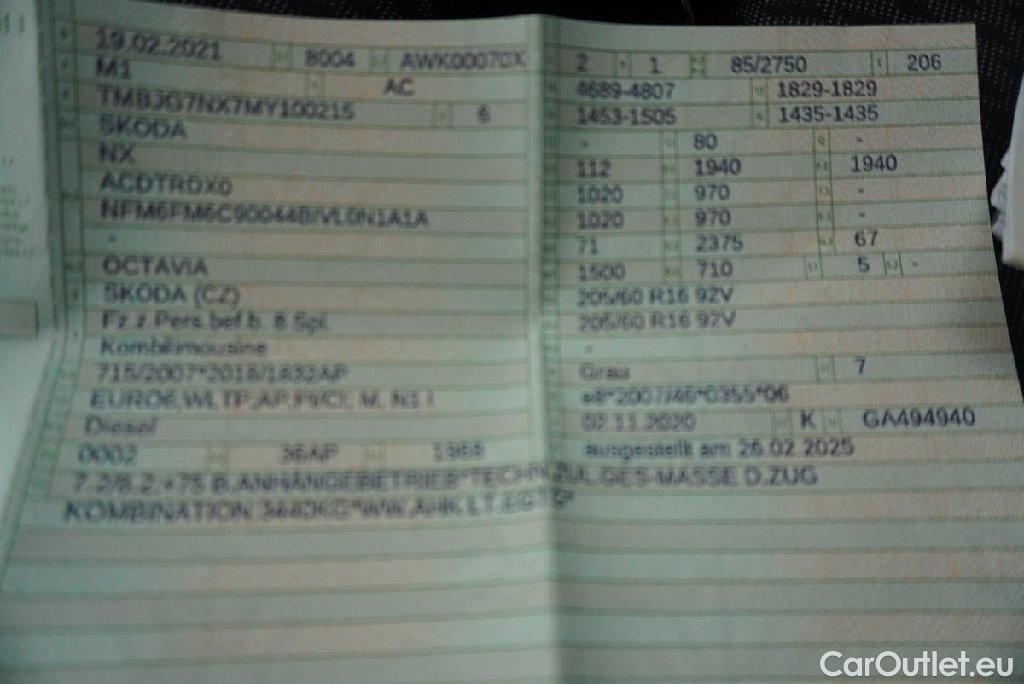 19.02.2021 8004 AWK00070X
M1 AC
TMBJG7NX7MY100215 6
SKODA
NX
ACDTRDX0
NFM6FM6C90044B/VL0N1A1A
-
OCTAVIA
SKODA (CZ)
Fz.z.Pers.bef.b. 8 Spl.
Kombilimousine
715/2007*2018/1832AP
EURO6,WLTP,AP,PI/CI, M, N1 I
Diesel
0002 36AP 1968
2 1 85/2750 206
4689-4807 1829-1829
1453-1505 1435-1435
- 80 -
112 1940 1940
1020 970 -
1020 970 -
71 2375 67
1500 710 5 -
205/60 R16 92V
205/60 R16 92V
-
Grau 7
e8*2007/46*0355*06
02.11.2020 K GA494940
ausgestellt am 26.02.2025
7.2/8.2:+75 B.ANHÄNGEBETRIEB*TECHN.ZUL.GES-MASSE D.ZUG
KOMBINATION:3440KG*WW.AHK LT.EGTG*
CarOutlet.eu